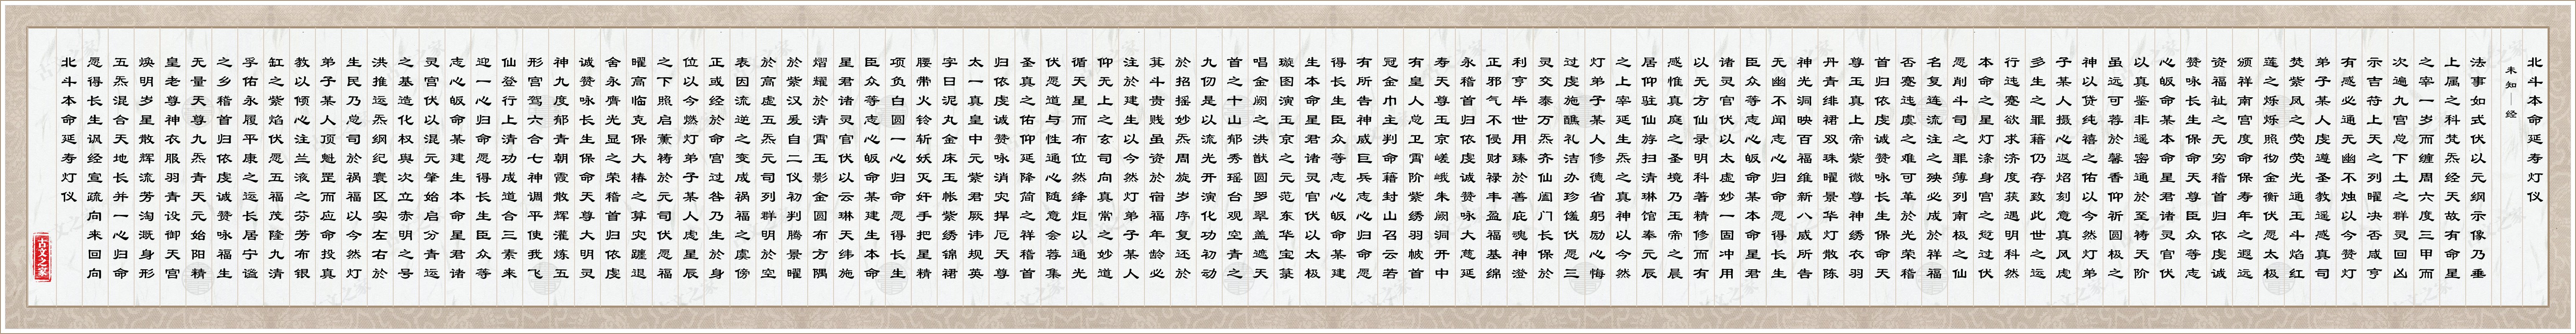 北斗本命延寿灯仪
未知—经
法事如式伏以元纲示像乃垂
上属之科梵炁经天故有命星
之宰一岁而缠周六度三甲而
次遍九宫总下土之群灵回凶
示吉苻上天之列曜决否咸亨
有感必通无幽不烛以今赞灯
弟子某人虔遵圣教遥感真司
焚紫凤之荧荧光通玉斗焰红
莲之烁烁照彻金衡伏愿太极
颁祥南宫度命保寿年之遐远
资福祉之无穷稽首归依虔诚
赞咏长生保命天尊臣众等志
心皈命某本命星君诸灵官伏
以真鉴非遥密通於至祷天阶
虽远可荐於馨香仰祈圆极之
神以贷纯禧之佑以今然灯弟
子某人摄心返焰刻意真风虑
多生之罪藉仍存致此世之运
行迍蹇欲求济度获遇明科然
本命之星灯涤身宫之愆过伏
愿削斗司之罪薄列南极之仙
名复连流注之殃必成於祥福
否蹇迍虔之难可革於光荣稽
首归依虔诚赞咏长生保命天
尊玉真上帝紫微尊神绣衣羽
丹青绯裙双珠曜景华灯散陈
神光洞映百福维新八威所告
无幽不闻志心归命愿得长生
臣众等志心皈命某本命星君
诸灵官伏以太虚妙一固冲用
以无方仙录明科著精修而有
感惟真庭之圣境乃玉帝之晨
居仰驻仙斿扫清琳馆奉元辰
之上宰延生炁之真神以今然
灯弟子某人修德省躬励心悔
过虔施醮礼洁办珍馐伏愿三
灵交泰万炁齐仙阖门长保於
利亨毕世用臻於善庇魂神澄
正邪气不侵财禄丰盈福基绵
永稽首归依虔诚赞咏大慈延
寿天尊玉京嵯峨朱阙洞开中
有皇人总卫霄阶紫绣羽帔首
冠金巾主判命籍封山召云若
有所告神威巨兵志心归命愿
得长生臣众等志心皈命某建
生本命星君诸灵官伏以太极
璇图演玉京之元范东华宝箓
唱金阙之洪猷圆罗翠盖遮天
首之十山郁秀瑶台观空青之
九仞是以流光开演化功初动
於招摇妙炁周旋岁序复还於
箕斗贵贱虽资於宿福年龄必
注於建生以今然灯弟子某人
仰无上之玄司向真常之妙道
循天星而布位然绛炬以通光
伏愿道与性通心随意会荐集
圣真之佑仰延降简之祥稽首
归依虔诚赞咏消灾捍厄天尊
太一真皇中元紫君厥讳规英
字曰泥丸金床玉帐紫绣锦裙
腰带火铃斩妖灭奸手把星精
项负白圆一心归命愿得长生
臣众等志心皈命某建生本命
星君诸灵官伏以云琳天纬施
熠耀於清霄玉影金圆布方隅
於紫汉爰自二仪初判腾景曜
於高虚五炁元司列群明於空
表因流逆之变成祸福之虔
正或经於命宫过咎乃生於身
位以今燃灯弟子某人虑星辰
之下照启薰祷於元司伏愿福
曜高临克保大椿之算灾躔
舍永齊光显之荣稽首归依虔
诚赞咏长生保命天尊大明灵
神九度郁青朝霞散辉灌炼五
形宫驾六合七神调平使我飞
仙登行上清功成道合三素来
迎一心归命愿得长生臣众等
志心皈命某建生本命星君诸
灵官伏以混元肇始启分青运
之基造化权與次立赤明之号
洪推运炁纲纪寰区实左右於
生民乃总司於祸福以今然灯
弟子某人顶魁罡而应命投真
教以倾心注兰液之芬芳布银
缸之紫焰伏愿五福茂隆九清
孚佑永履平康之运长居宁谧
之乡稽首归依虔诚赞咏福生
无量天尊九炁青天元始阳精
皇老尊神衣服羽青设御天宫
焕明岁星散辉流芳淘溉身形
五炁混合天地长并一心归命
愿得长生讽经宣疏向来回向
北斗本命延寿灯仪
古文之家